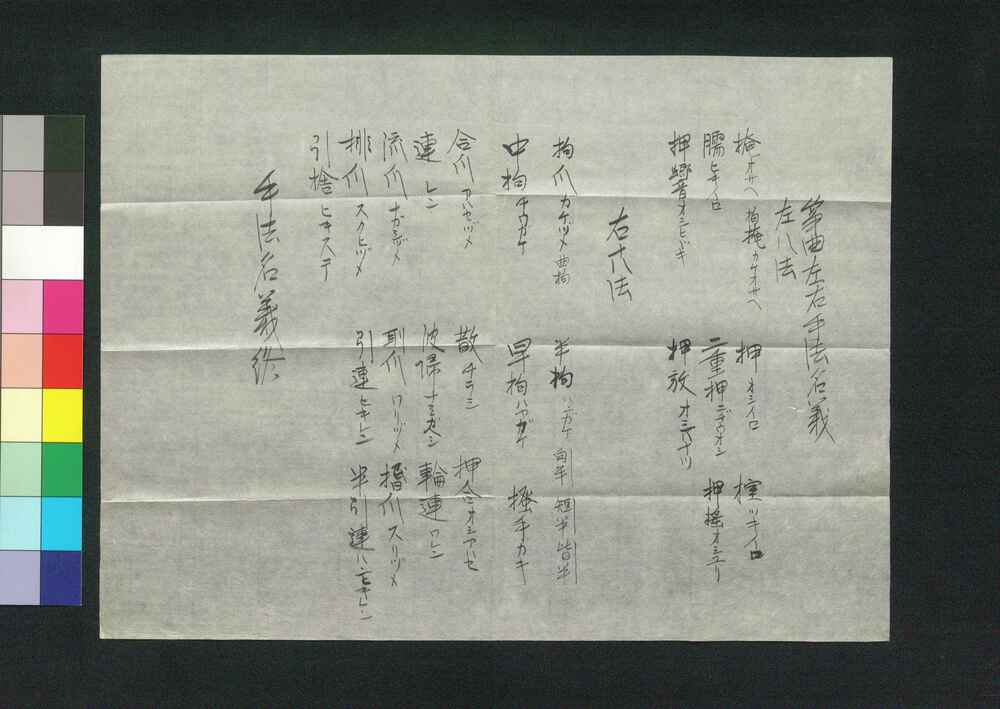 箏曲左右手法名義
左八法
掩 オサヘ 拘掩 カケオサヘ 押 オシイロ 㨖 ツキイロ
臑 ヒキイロ 二重押 ニヂウオシ 押搖 オシユリ
押響 オシヒビキ 押放 オシハナツ
右十八法
拘爪 カケヅメ 曲拘 半拘 ハンガケ 向半 短半 皆半
中拘 チウカケ 早拘 ハヤガケ 掻手 カキ
合爪 アハセヅメ 散 チラシ 押合 オシアハセ
連 レン 波帰 ナミガヘシ 輪連 ワレン
流爪 ナガシヅメ 割爪 ワリヅメ 摺爪 スリヅメ
排爪 スクヒヅメ 引連 ヒキレン 半引連 ハンヒキレン
引捨 ヒキステ
手法名義終